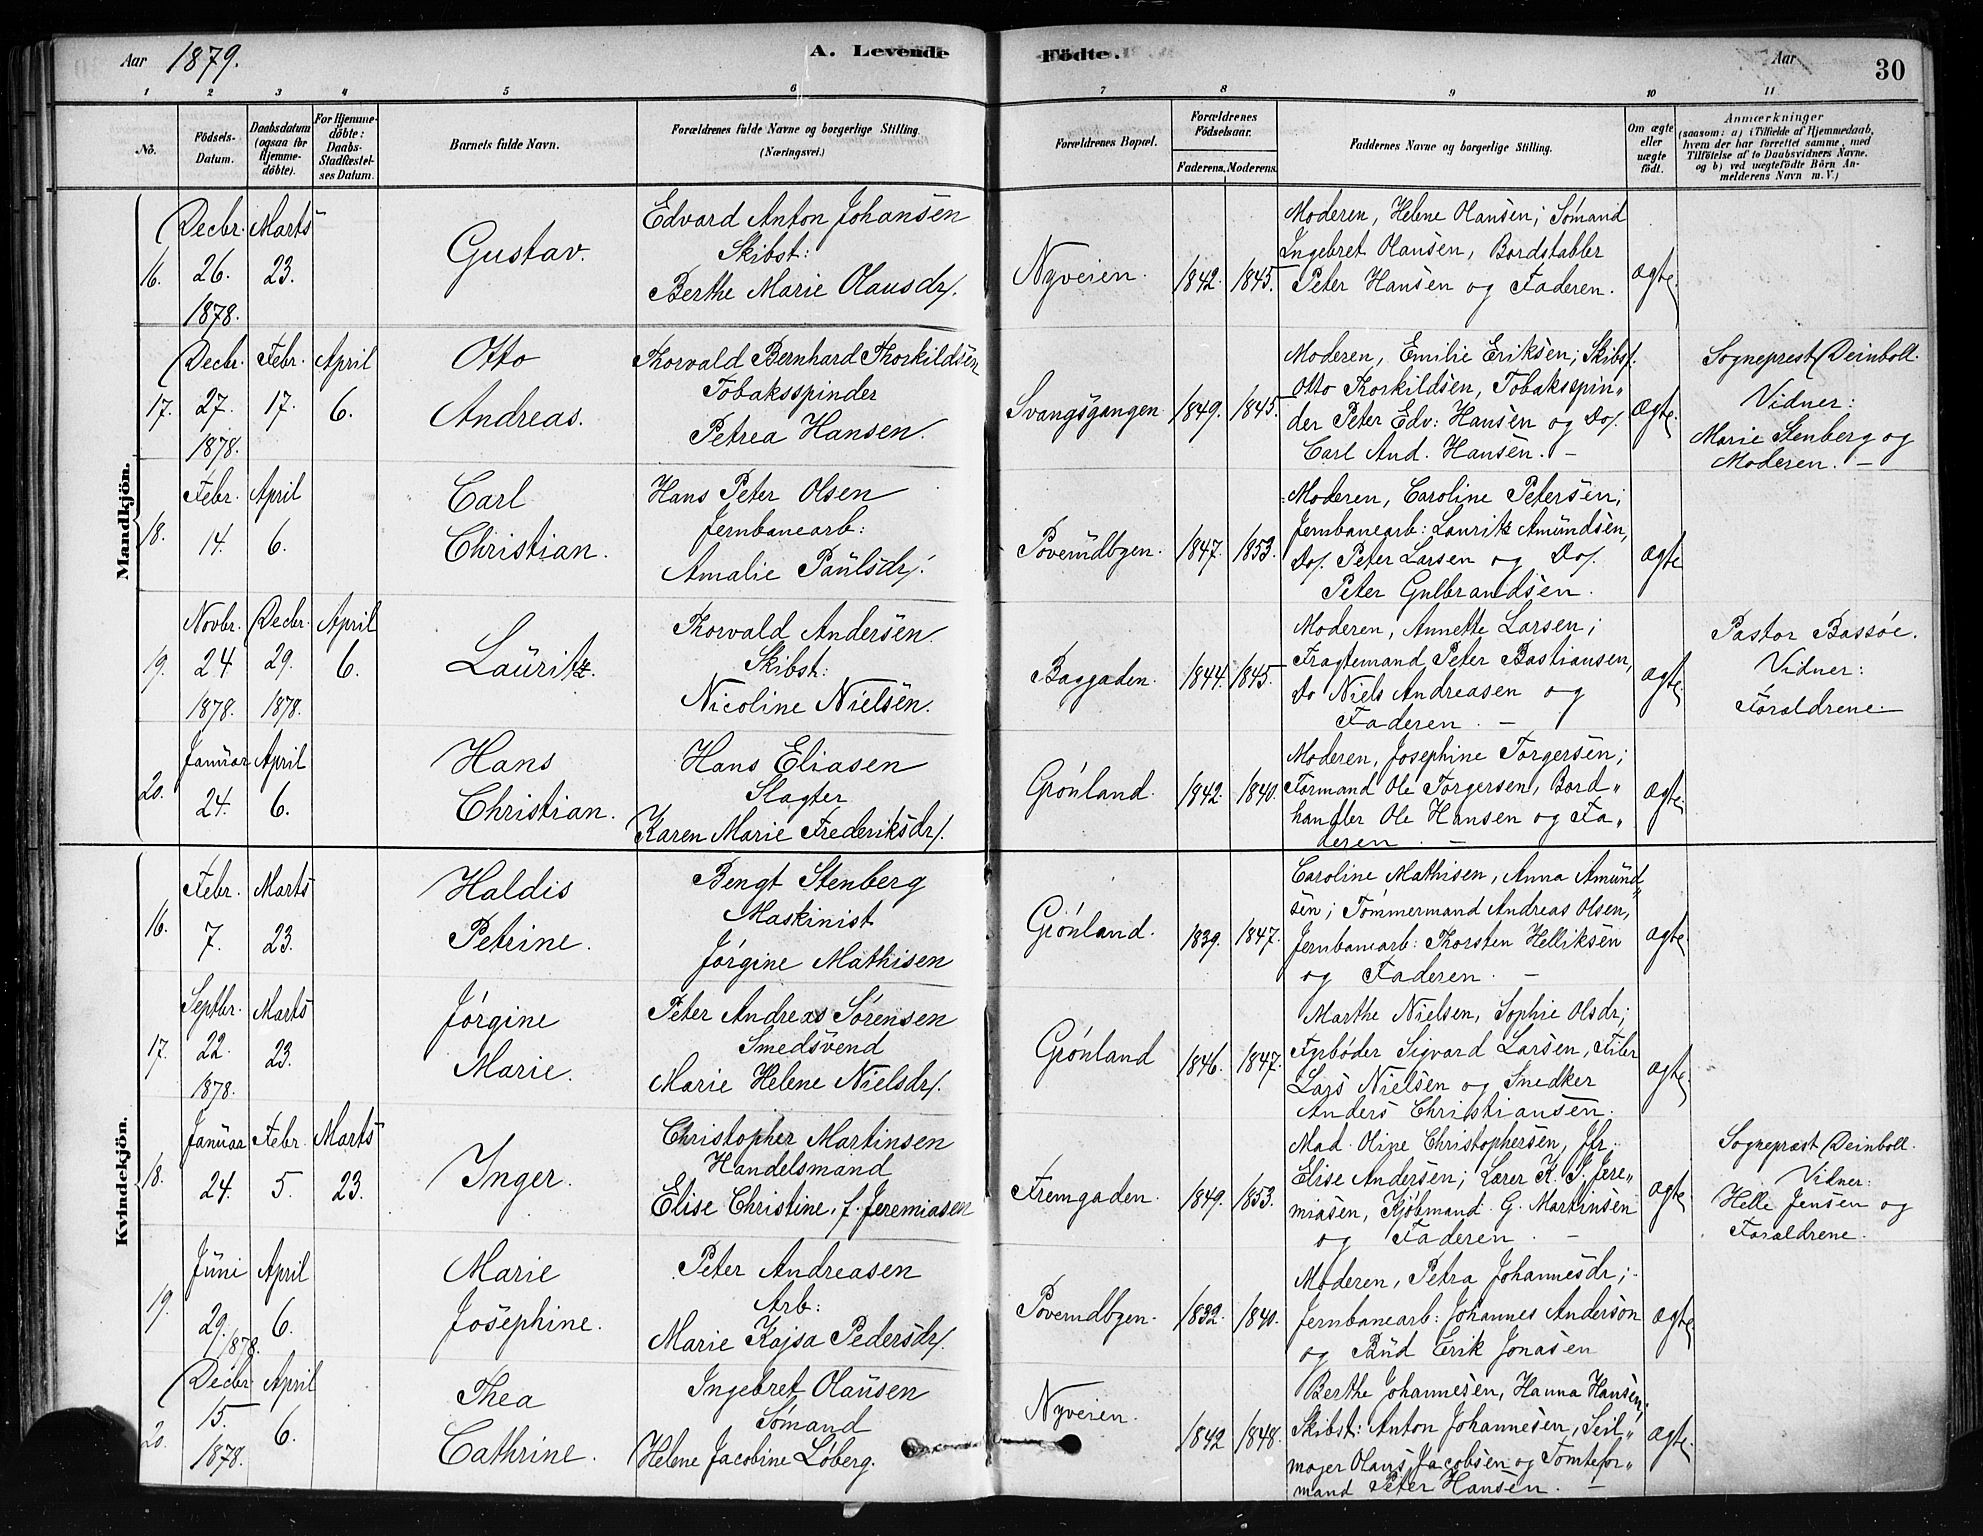 Aar 1879.
A. Levende Födte.
Aar
30
1 2 3 4 5 6 7 8 9 10 11
No.
Födsels-Datum.
Daabsdatum (ogsaa for Hjemme-döbte).
For Hjemme-döbte: Daabs-Stadfæstel-ses Datum.
Barnets fulde Navn.
Forældrenes fulde Navne og borgerlige Stilling.
(Næringsvei.)
Forældrenes Bopæl.
Forældrenes Födselsaar.
Faderens. Moderens.
Faddernes Navne og borgerlige Stilling.
Om ægte eller uægte födt.
Anmærkninger
(saasom: a) i Tilfælde af Hjemmedaab, hvem der har forrettet samme, med Tilföielse af to Daabsvidners Navne, og b) ved uægtefödte Börn An-melderens Navn m. V.)
Mandkjön.
16. Decbr. 26. 1878. Marts 23.
Gustav.
Edvard Anton Johansen
Skibst:
Berthe Marie Olausdr/.
Nyveien. 1842. 1845.
Moderen, Helene Olansen; Sømand
Ingebret Olansen, Bordstabler
Peter Hansen og Faderen.
ægte.
17. Decbr. 27. 1878. Febr. 17. April 6.
Otto
Andreas.
Thorvald Bernhard Thorkildsen
Tobaksspinder
Petrea Hansen.
Svangsgangen 1849. 1845.
Moderen, Emilie Eriksen; Skibs/.
Otto Thorkildsen, Tobaksspin„
der Peter Edv: Hansen og Do/.
Carl And. Hansen. –
Ægte.
Sogneprest Deinboll.
Vidner:
Marie Stenberg og
Moderen. –
18. Febr. 14. April 6.
Carl
Christian.
Hans Peter Olsen
Jernbanearb:
Amalie Paulsdr/.
Poverudbyen. 1847. 1853.
Moderen, Caroline Petersen;
Jernbanearb: Lauritz Amundsen,
Do/. Peter Larsen og Do/.
Peter Gulbrandsen.
ægte
19. Novbr. 24 1878. Decbr. 29. 1878. April 6.
Lauritz.
Thorvald Andersen
Skibst:
Nicoline Nielsen.
Baggaden. 1844. 1845.
Moderen, Annette Larsen;
Fragtemand Peter Bastiansen,
Do Niels Andreasen og
Faderen. –
ægte.
Pastor Bassøe.
Vidner:
Forældrene.
20. Januar 24. April 6.
Hans
Christian.
Hans Eliasen
Slagter
Karen Marie Frederiksdr/.
Grønland. 1842. 1840.
Moderen, Josephine Torgersen;
Formand Ole Torgersen, Bord„
handler Ole Hansen og Fa„
deren. –
ægte.
Kvindekjön.
16. Febr. 7. Marts 23.
Haldis
Petrine.
Bengt Stenberg
Maskinist
Jørgine Mathisen
Grønland. 1839. 1847.
Caroline Mathisen, Anna Amund„
sen; Tømmermand Andreas Olsen,
Jernbanearb: Thorsten Helliksen
og Faderen. –
ægte.
17. Septbr. 22. 1878. Marts 23.
Jørgine
Marie.
Peter Andreas Sørensen
Smedsvend
Marie Helene Nielsdr/.
Grønland 1846. 1847.
Marthe Nielsen, Sophie Olsdr;
Fyrbøder Sigvard Larsen, Filer
Lars Nielsen og Snedker
Anders Christiansen.
ægte.
18. Januar 24. Febr. 5. Marts 23.
Inger.
Christopher Martinsen
Handelsmand
Elise Christine, f. Jeremiasen
Fremgaden. 1849. 1853.
Mad. Oline Christophersen, Jfr.
Elise Andersen; Lærer K. J. Jere„
miasen, Kjøbmand G. Martinsen
og Faderen. –
ægte.
Sogneprest Deinboll.
Vidner:
Helle Jensen og
Forældrene.
19. Juni 29. 1878. April 6.
Marie
Josephine.
Peter Andreasen
Arb:
Marie Kajsa Pedersdr/.
Poverudbyen. 1832. 1840.
Moderen, Petra Johannesdr;
Jernbanearb: Johannes Anderson
og Bud Erik Jonasen
ægte
20. Decbr. 15. 1878. April 6.
Thea
Cathrine.
Ingebret Olausen
Sømand
Helene Jacobine Løberg.
Nyveien. 1842 1848.
Berthe Johannesen, Hanna Hansen;
Skibst: Anton Johannesen, Seil„
mager Olaus Jacobsen og Tomtefor„
mand Peter Hansen. –
ægte.